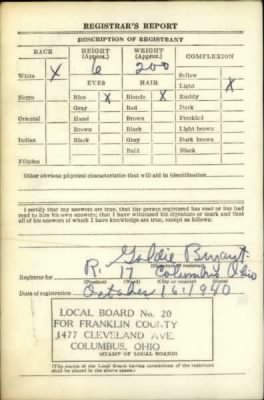 REGISTRAR'S REPORT
DESCRIPTION OF REGISTRANT
RACE HEIGHT (Approx.) WEIGHT (Approx.) COMPLEXION
6 200
White X Sallow
EYES HAIR Light X
Negro Blue X Blonde X Ruddy
Gray Red Dark
Oriental Hazel Brown Freckled
Brown Black Light brown
Indian Black Gray Dark brown
Bald Black
Filipino
Other obvious physical characteristics that will aid in identification
I certify that my answers are true; that the person registered has read or has had
read to him his own answers; that I have witnessed his signature or mark and that
all of his answers of which I have knowledge are true, except as follows:
Goldie Bryant
(Signature of registrar)
Registrar for R. 17 Columbus Ohio
(Precinct) (Ward) (City or county) (State)
Date of registration October 16, 1940
LOCAL BOARD No. 20
FOR FRANKLIN COUNTY
1477 CLEVELAND AVE.
COLUMBUS, OHIO
(STAMP OF LOCAL BOARD)
(The stamp of the Local Board having jurisdiction of the registrant
shall be placed in the above space.)